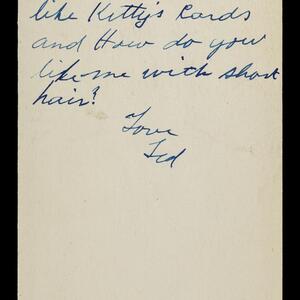 like Kitty's Cards
and How do you
like me with short
hair?
Love
Ted